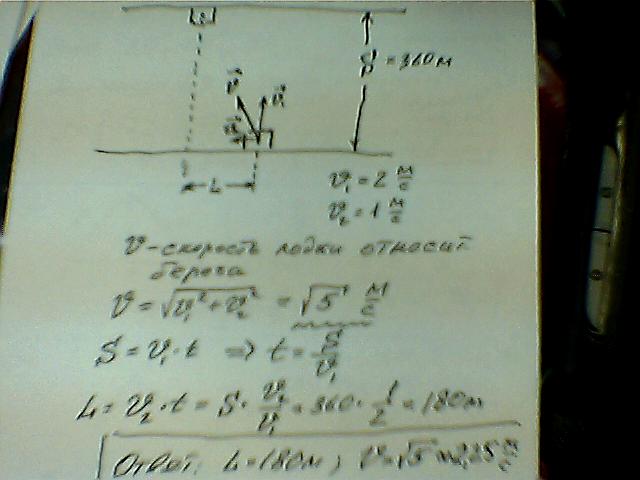 S = 360м
L
v₁ = 2 м/с
v₂ = 1 м/с
v - скорость лодки относит
берега
v = √(v₁² + v₂²) = √5 м/с
S = v₁ · t ⇒ t = S/v₁
L = v₂ · t = S · v₂/v₁ = 360 · 1/2 = 180м
Ответ: L = 180м; v = √5